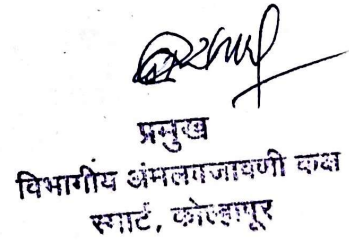 प्रमुख
विभागीय अंमलबजावणी कक्ष
स्मार्ट, कोल्हापूर